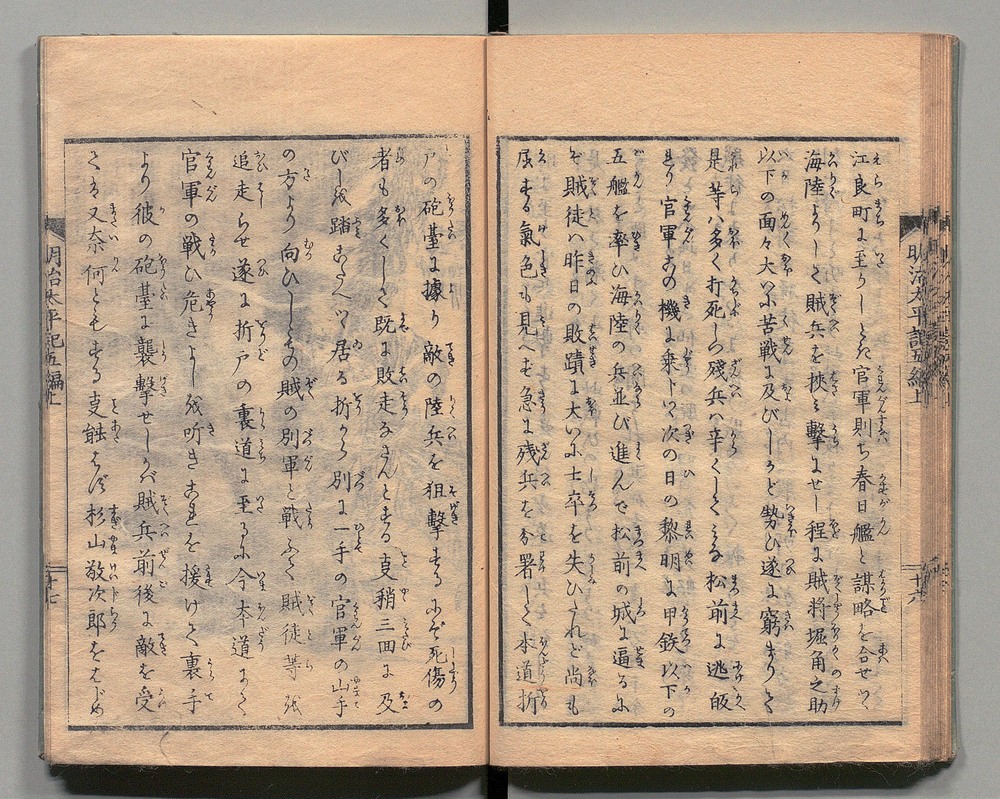 江良町に至りしとた官軍則ち春日艦と謀略を合せつゝ
海陸よりして賊兵を挾み撃にせし程に賊將堀角之助
以下の面々大いに苦戦に及びしかど勢ひ遂に窮まりて
是等ハ多く打死しつ殘兵ハ辛くしてみな松前に逃皈
れり官軍この機に乗トいて次の日の黎明に甲鉄以下の
五艦を率ひ海陸の兵並び進んで松前の城に逼るに
ぞ賊徒ハ昨日の敗蹟に大いに士卒を失ひたれど尚も
屈する氣色も見へず急に残兵を分署して本道折
戸の砲臺に據り敵の陸兵を狙撃するにぞ死傷の
者も多くして既に敗走なさんとする事稍三回に及
びしを踏こたへつゝ居る折から別に一手の官軍の山手
の方より向ひしもの賊の別軍と戦ふて賊徒等を
追走らせ遂に折戸の裏道に至るに今本道なる
官軍の戦ひ危きよしを听きこれを援けて裏手
より彼の砲臺に襲撃せしかバ賊兵前後に敵を受
さる又奈何ともする事能はず杉山敬次郎をはじめ
明治太平記五編上
十六
明治太平記五編上
十七